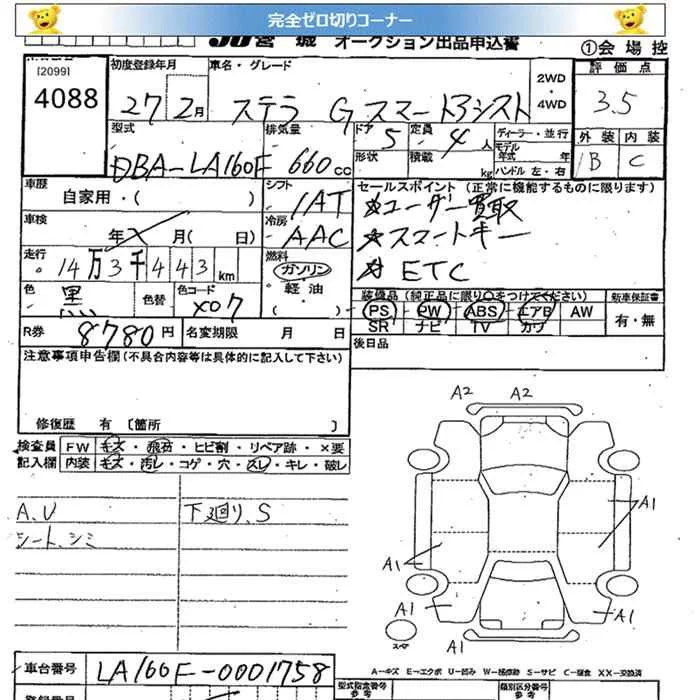 完全ゼロ切りコーナー
JU宮城 オークション出品申込書
①会場控
[2099]
4088
初度登録年月 車名・グレード
27 2月 ステラ G スマートアシスト
2WD・4WD
評価点
3.5
型式 排気量 ドア 定員 ディーラー・並行
DBA-LA160F 660cc 5 4人
形状 積載 kg
モデル年式 年
ハンドル 左・右
外装 内装
B C
車歴 自家用・( )
シフト IAT
セールスポイント(正常に機能するものに限ります)
車検 年 月( 日)
冷房 AAC
☆ユーザー買取
☆スマートキー
☆ETC
走行 14万3千443km
燃料 ガソリン・軽油・( )
色 黒 色替 色コード X07
装備品(純正品に限り〇をつけてください) 新車保証書
PS・PW・ABS・エアB・AW
SR ナビ TV カワ
有・無
R券 8780円 名変期限 月 日
後日品
注意事項申告欄(不具合内容等は具体的に記入して下さい)
修復歴 有 〔箇所 〕
検査員記入欄
FW キズ・飛石・ヒビ割・リペア跡・×要
内装 キズ・汚レ・コゲ・穴・スレ・キレ・破レ
A.U 下廻り、S
シート、シミ
A2 A2
A1
A1
A1 A1
A1
スペア
車台番号 LA160F-0001758
A-キズ E-エクボ U-凹み W-補修跡 S-サビ C-腐食 XX-交換済
登録番号
型式指定番号 参考
類別区分番号 参考